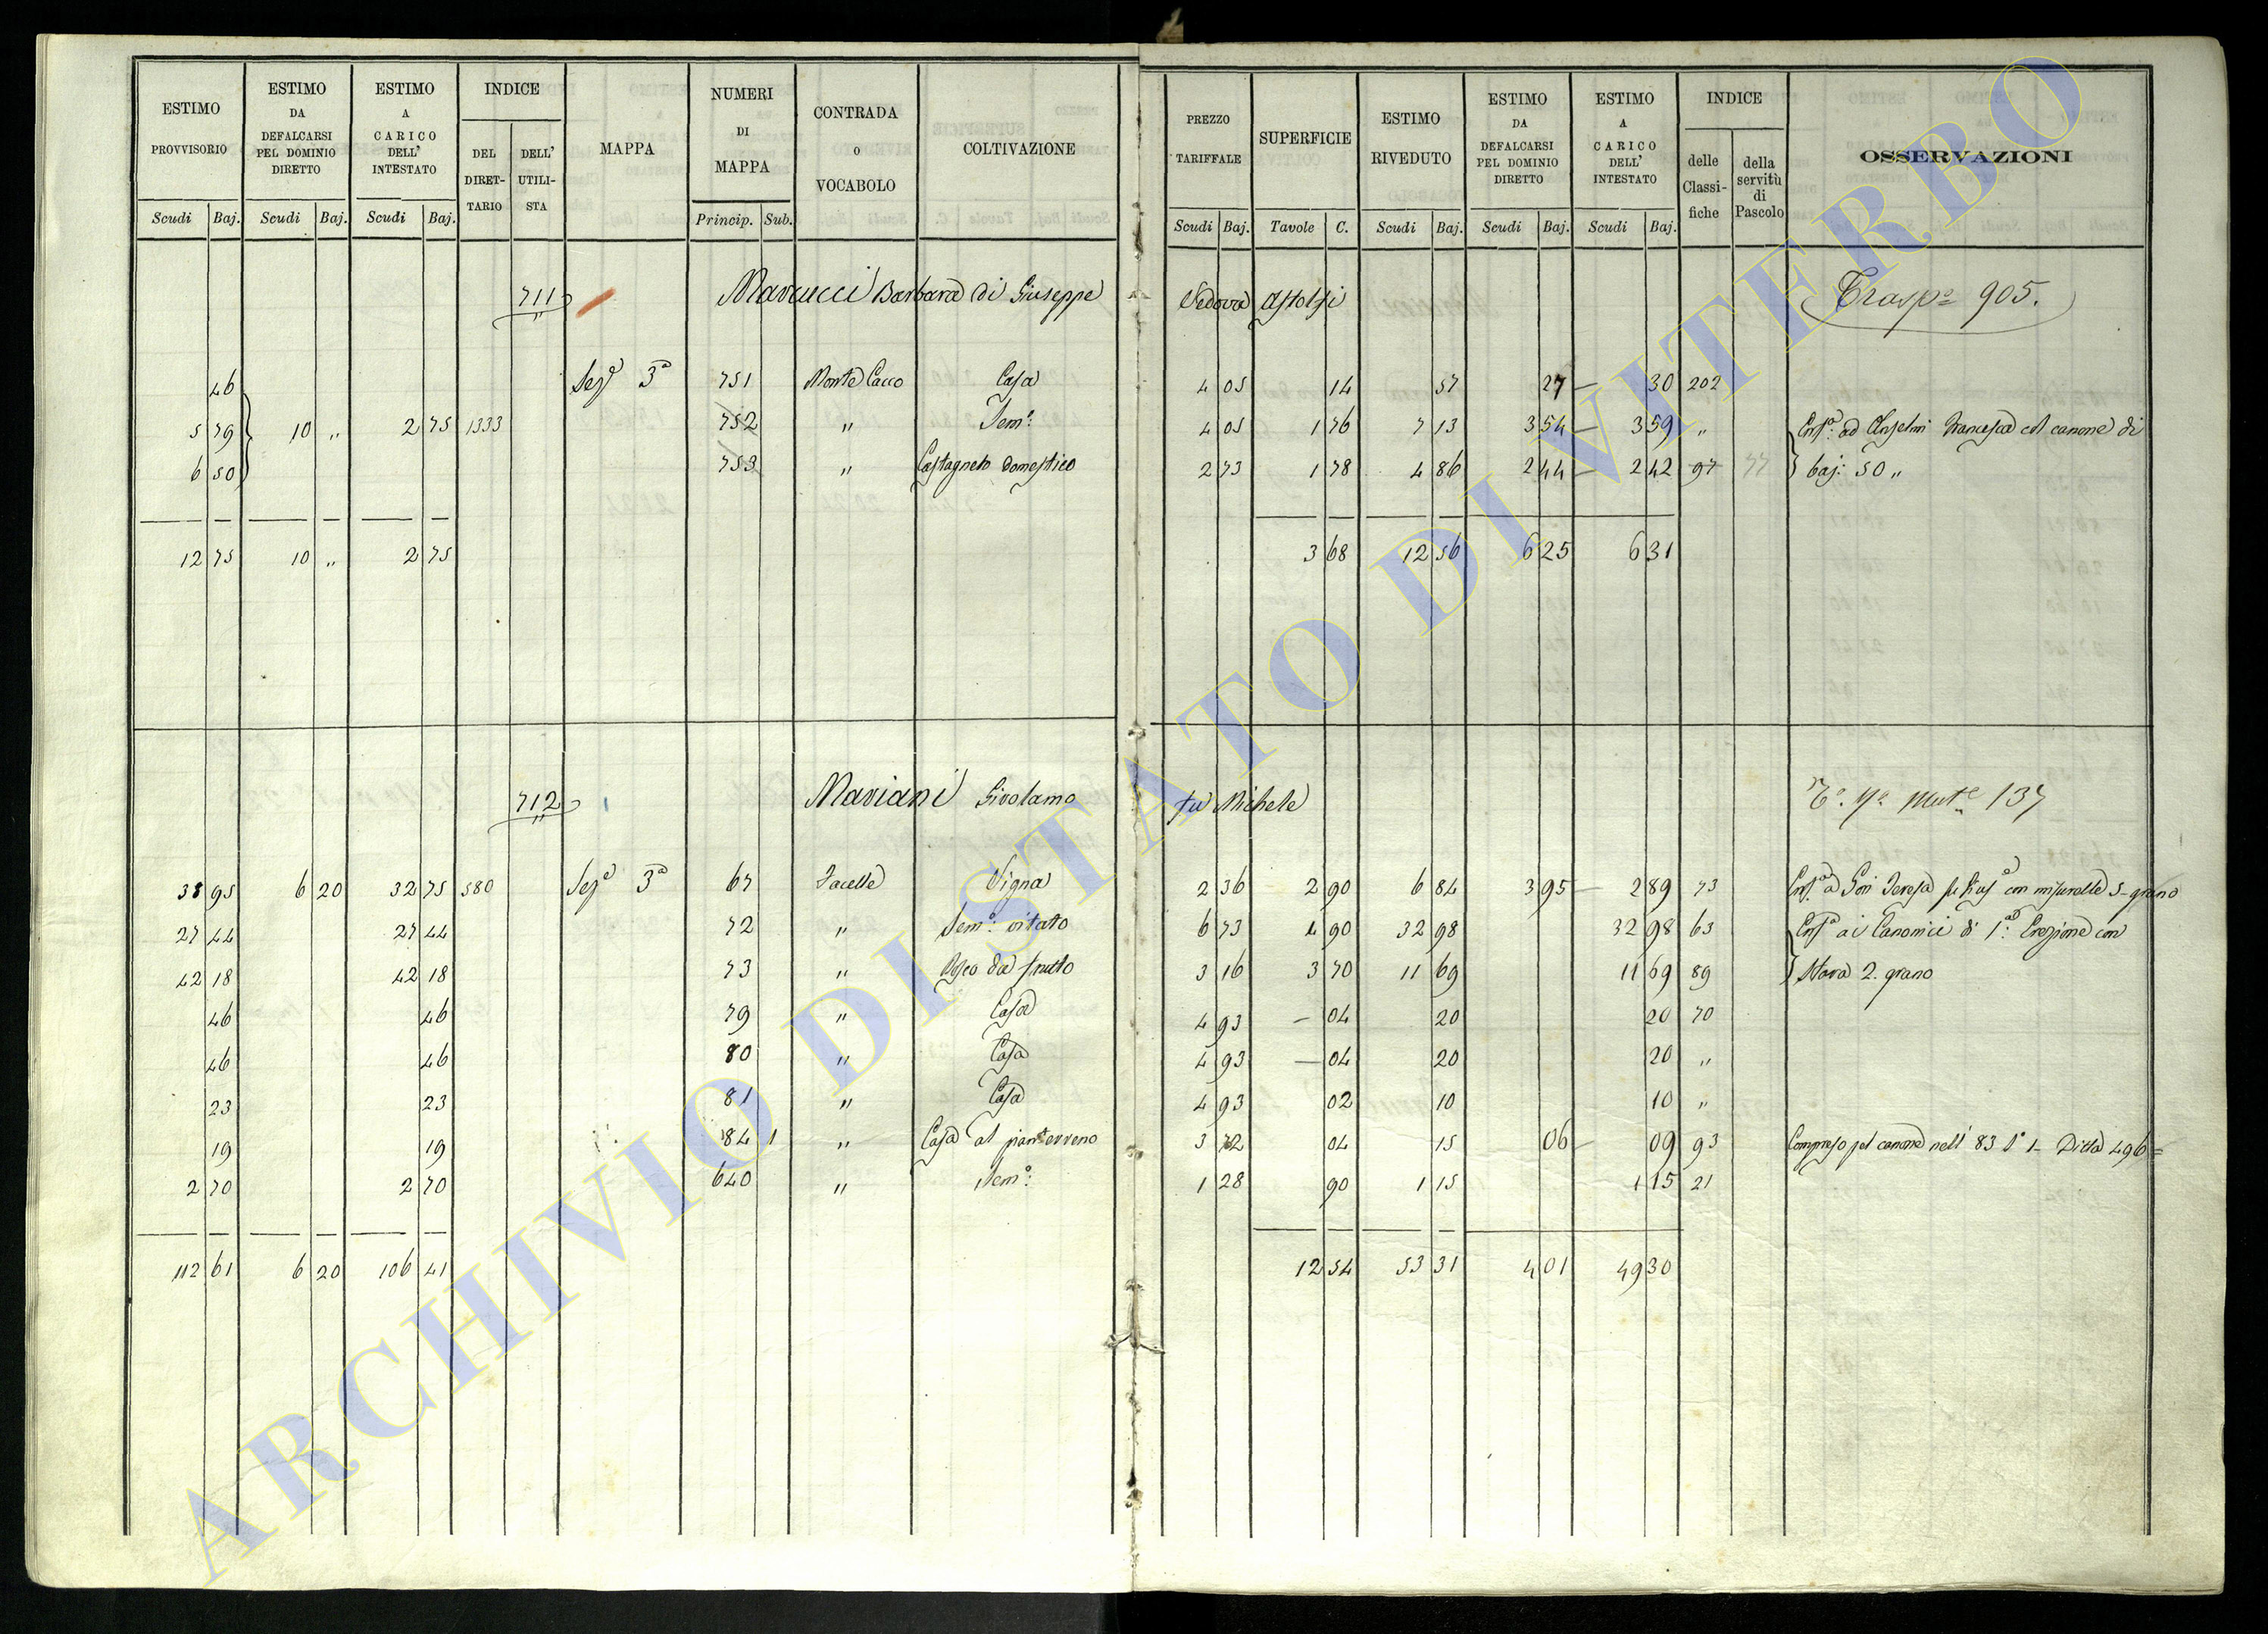 ESTIMO PROVVISORIO | ESTIMO DA DEFALCARSI PEL DOMINIO DIRETTO | ESTIMO A CARICO DELL' INTESTATO | INDICE DEL DIRET-TARIO | DELL' UTILI-STA | MAPPA | NUMERI DI MAPPA | CONTRADA O VOCABOLO | COLTIVAZIONE | PREZZO TARIFFALE | SUPERFICIE | ESTIMO RIVEDUTO | ESTIMO DA DEFALCARSI PEL DOMINIO DIRETTO | ESTIMO A CARICO DELL' INTESTATO | INDICE delle Classi-fiche | della servitù di Pascolo | OSSERVAZIONI
Scudi Baj. | Scudi Baj. | Scudi Baj. | Princip. Sub. | Scudi Baj. | Tavole C. | Scudi Baj. | Scudi Baj. | Scudi Baj.
711 Marcucci Barbara di Giuseppe Vedova Astolfi Trasp.e 905.
46 Sez.e 3a 751 Monte Cacco Casa 4 05 14 57 27 — 30 202
5 79 10 „ 2 75 1333 752 „ Sem.o 4 05 1 76 7 13 3 54 — 3 59 „ Enf.a ad Anselmi Francesca col canone di
6 50 753 „ Castagneto domestico 2 73 1 78 4 86 2 44 — 2 42 97 77 baj: 50 „
12 75 10 „ 2 75 3 68 12 56 6 25 6 31
712 Mariani Girolamo fu Michele 137
38 95 6 20 32 75 580 Sez.e 3a 67 Vigna 2 36 2 90 6 84 3 95 — 2 89 73 Enf.a a Gori Teresa con misurelle 5 grano
27 44 27 44 72 „ Sem.o vitato 6 73 4 90 32 98 32 98 63 Enf.a ai Canonici di 1a Erezione con
42 18 42 18 73 „ Bosco da frutto 3 16 3 70 11 69 11 69 89 Stara 2. grano
46 46 79 „ Casa 4 93 — 04 20 20 70
46 46 80 „ Casa 4 93 — 04 20 20 „
23 23 81 „ Casa 4 93 02 10 10 „
19 19 84 1 „ Casa al pianterreno 3 72 04 15 06 — 09 93 Compreso pel canone nell' 83 S.o 1 — Ditta 496 =
2 70 2 70 640 „ Sem.o 1 28 90 1 15 1 15 21
112 61 6 20 106 41 12 54 53 31 4 01 49 30
ARCHIVIO DI STATO DI VITERBO